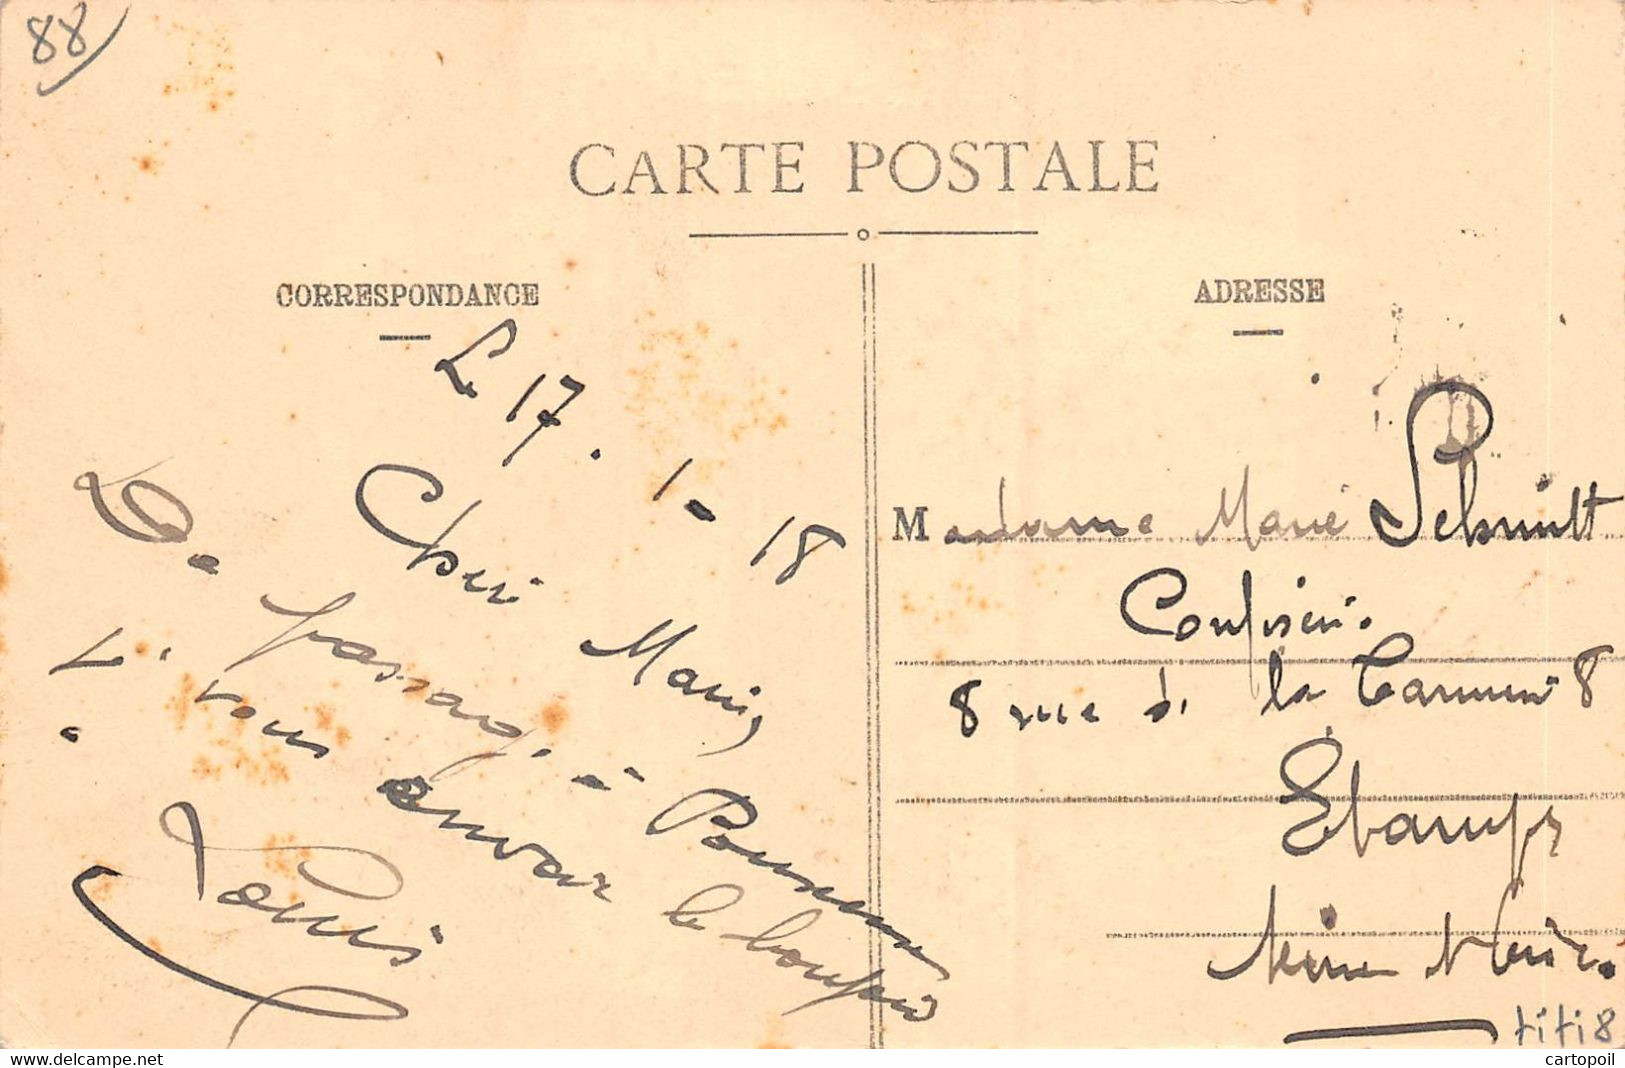 88
CARTE POSTALE
CORRESPONDANCE
ADRESSE
Le 17.1-18
Cheri Marie,
De passage à
je vous envoie le bonjour
Louis
Madame Marie Schmitt
Confiserie.
8 rue de la 8
Etampes
Seine et Oise.
titi8
cartopoil